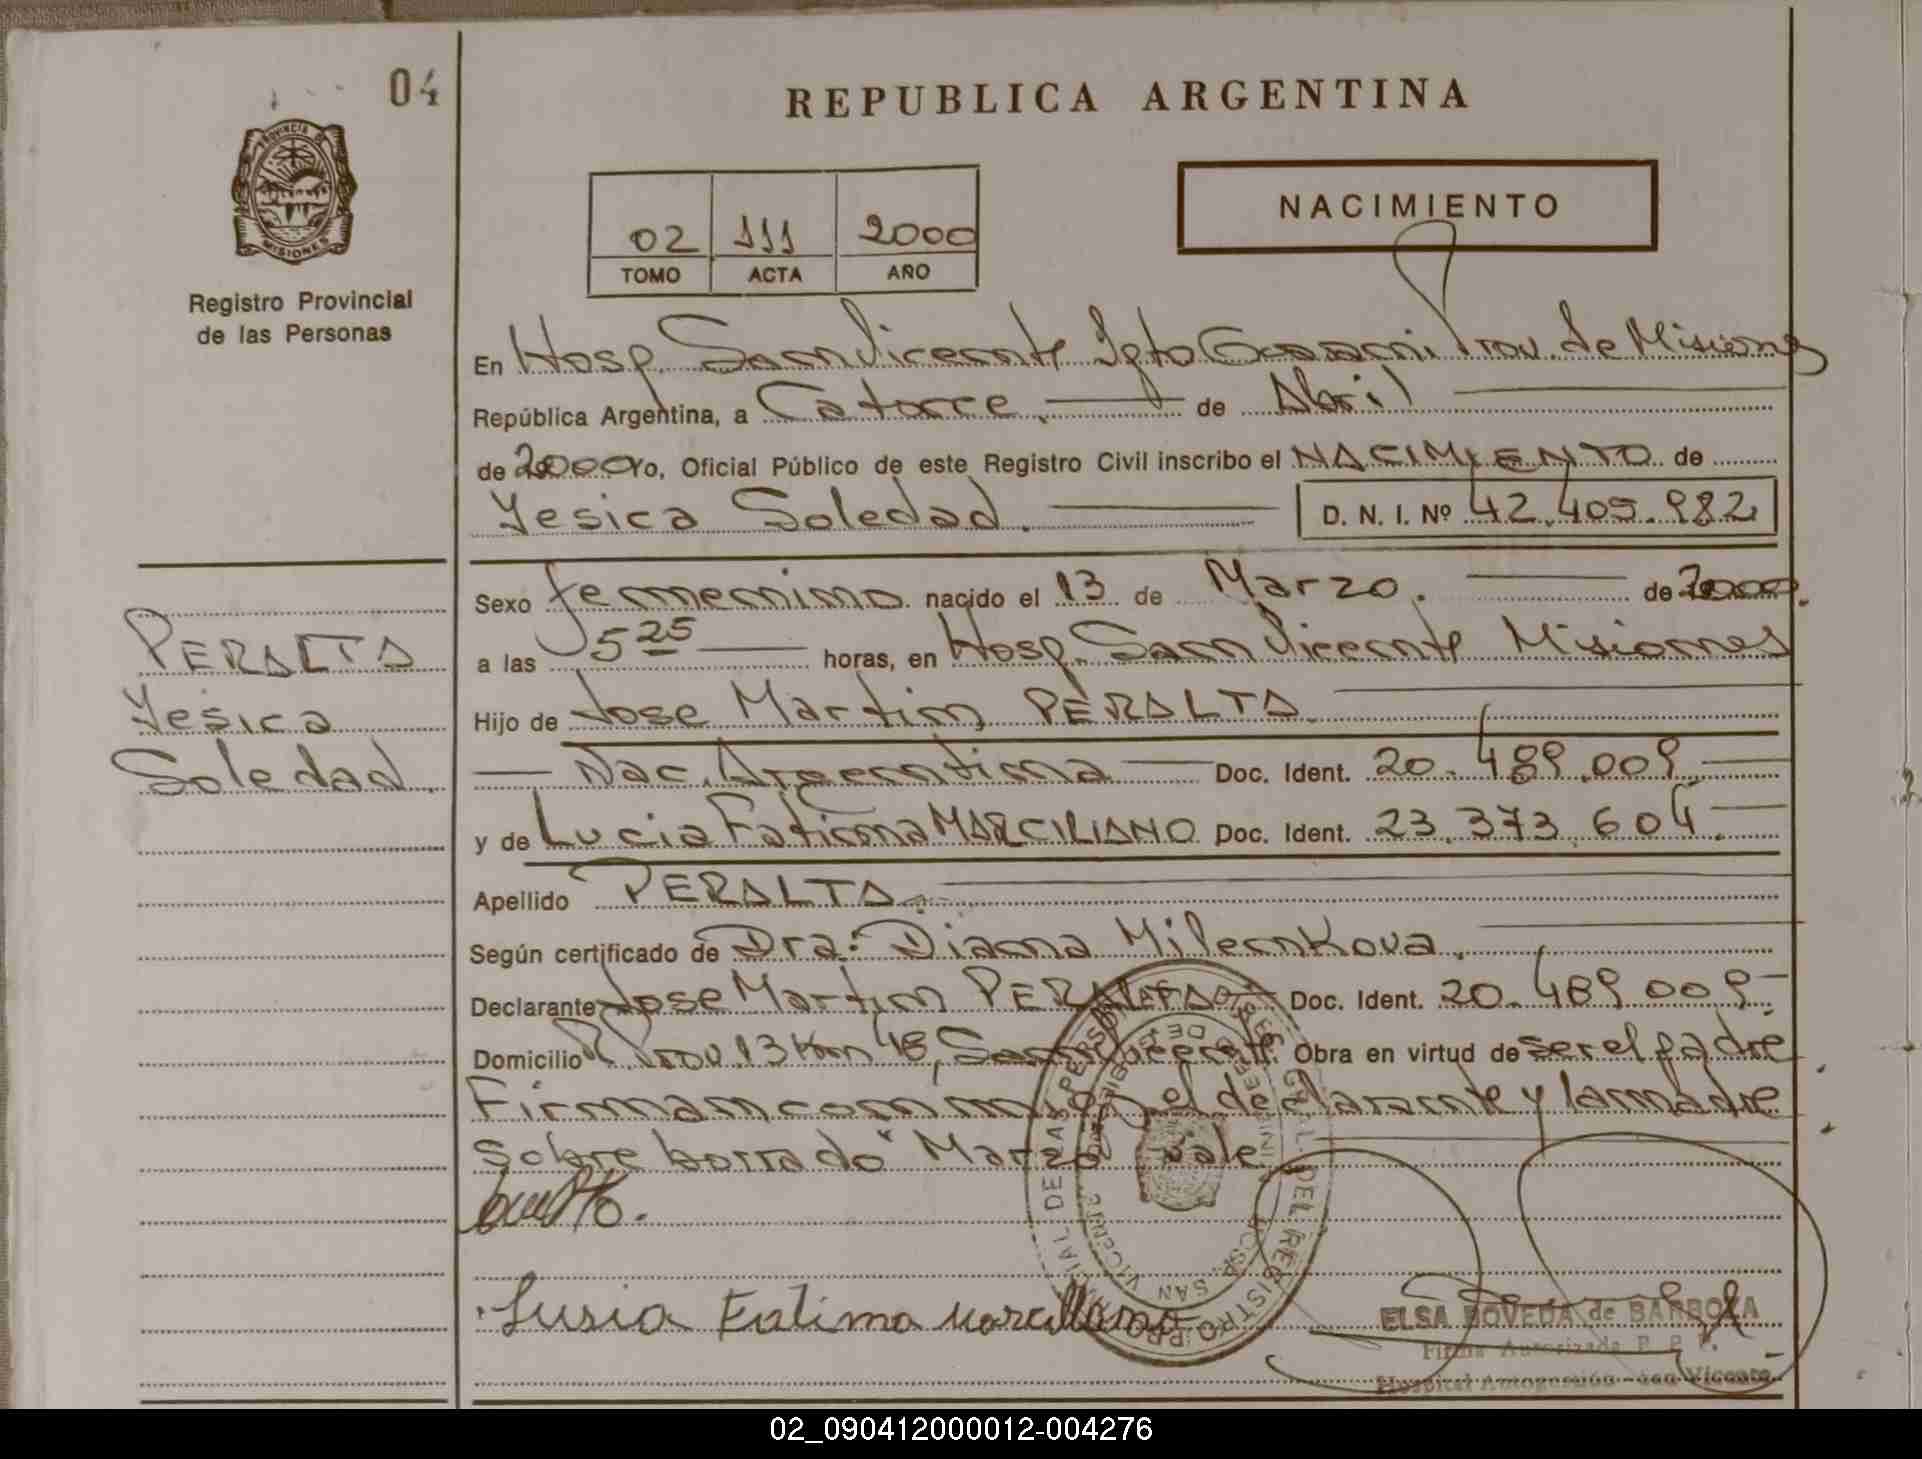 04
REPUBLICA ARGENTINA
PROVINCIA DE
MISIONES
Registro Provincial
de las Personas
02 111 2000
TOMO ACTA AÑO
NACIMIENTO
En Hosp. San Vicente Dpto Guarani Prov. de Misiones
República Argentina, a Catorce. de Abril
de 2000 Yo, Oficial Público de este Registro Civil inscribo el NACIMIENTO de
Yesica Soledad. D. N. I. Nº 42.405.982
Sexo femenino nacido el 13 de Marzo. de 2000.
a las 5 25 horas, en Hosp. San Vicente Misiones
Hijo de Jose Martin PERALTA
Nac. Argentina Doc. Ident. 20.489.009
y de Lucia Fatima MARCILIANO Doc. Ident. 23.373.604.
Apellido PERALTA.
Según certificado de Dra: Diana Milenkova.
Declarante Jose Martin PERALTA Doc. Ident. 20.489.009
Domicilio R. Prov. 13 Km 48, San Vicente. Obra en virtud de ser el padre
Firman conmigo el declarante y la madre
sobre borrado "Marzo" vale
PERALTA
Yesica
Soledad.
Lusia Fatima Marciliano
ELSA BOVEDA de BARBOZA
Firma Autorizada R. P. P.
Hospital Autogestión - San Vicente
02_090412000012-004276